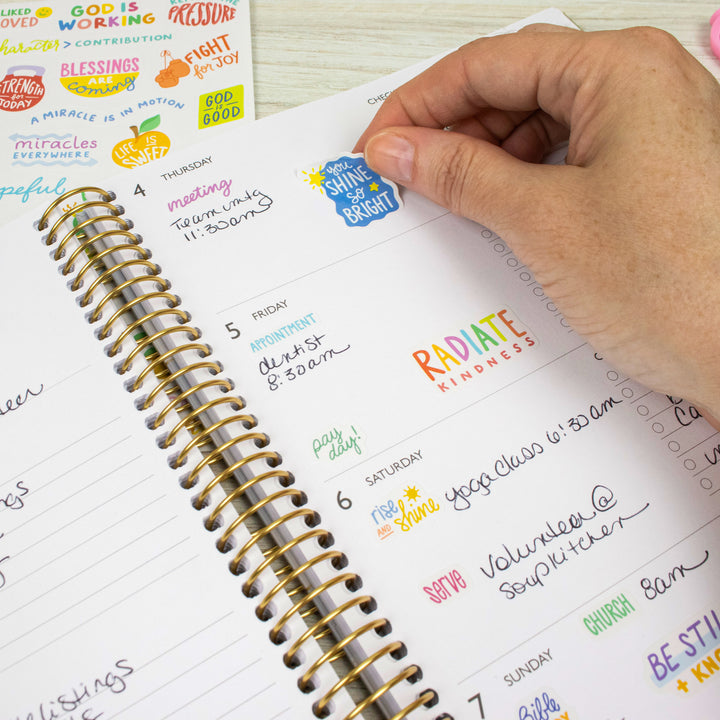 LIKED
LOVED
GOD IS
WORKING
PRESSURE
character > CONTRIBUTION
FIGHT
for JOY
STRENGTH
FOR TODAY
BLESSINGS
ARE
coming
GOD
IS
GOOD
A MIRACLE IS IN MOTION
miracles
EVERYWHERE
LIFE IS
SWEET
hopeful
CHECK
4 THURSDAY
meeting
Team mtg
11:30am
you
SHINE
SO
BRIGHT
5 FRIDAY
APPOINTMENT
dentist
8:30am
RADIATE
KINDNESS
pay
day!
6 SATURDAY
rise
AND shine
yoga class 6:30am
SERVE
volunteer @
soup kitchen
CHURCH
8am
7 SUNDAY
Bible
BE STILL
+ KNOW
listings